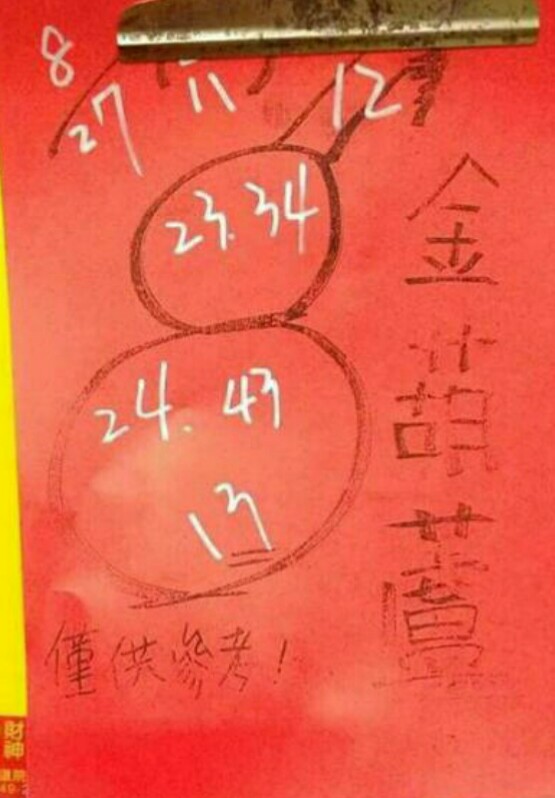 8
27 11 12
23.34
24. 43
13
金葫蘆
僅供參考!
財神